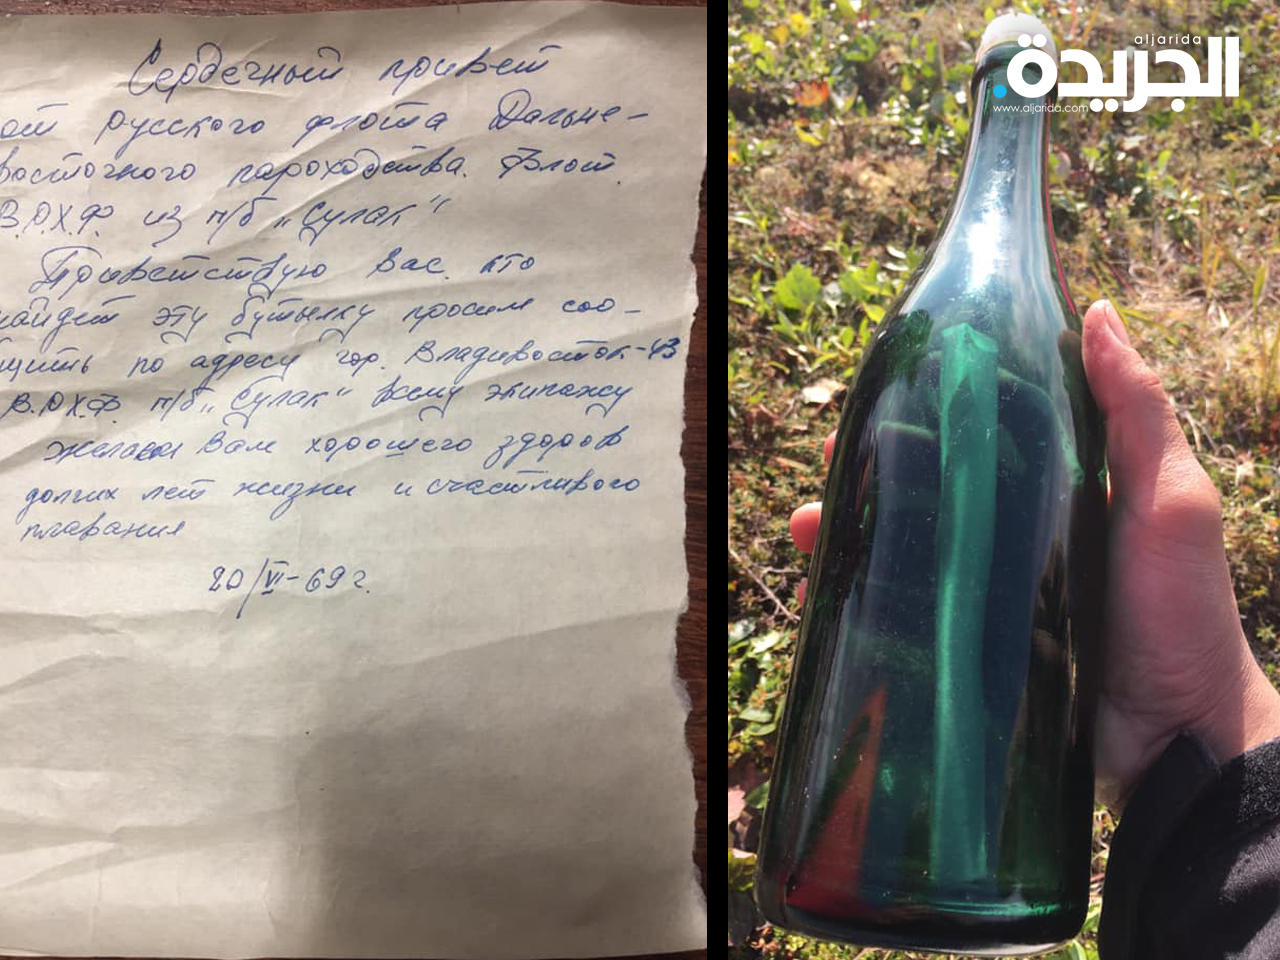 Сердечный привет
от русского флота Дальне-
восточного пароходства. Флот.
В.О.Х.Ф. из п/б „Сулак"
Приветствую Вас. кто
найдет эту бутылку просим соо-
щить по адресу гор. Владивосток-43
В.О.Х.Ф п/б „Сулак" экипажу
желаем Вам хорошего здоров
долгих лет жизни и счастливого
плавания
20/VI-69 г.
aljarida
الجريدة
www.aljarida.com